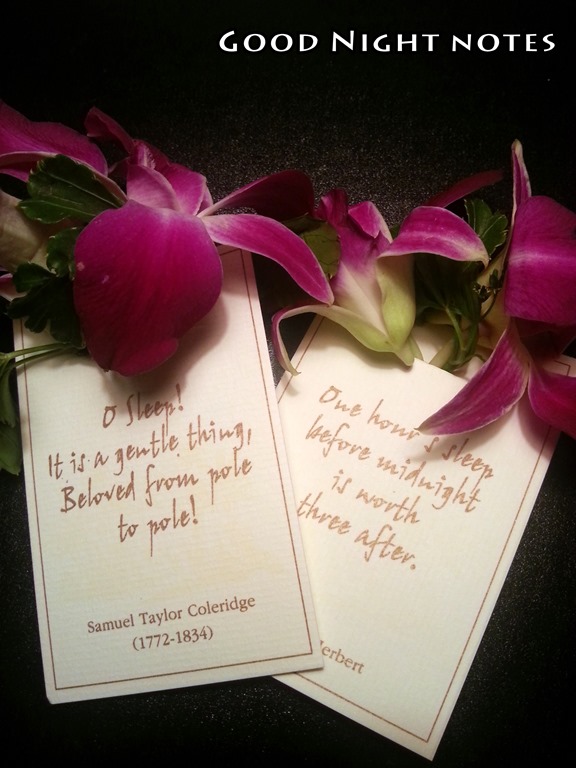 GOOD NIGHT NOTES
O Sleep!
It is a gentle thing,
Beloved from pole
to pole!
Samuel Taylor Coleridge
(1772-1834)
One hour's sleep
before midnight
is worth
three after.
Herbert